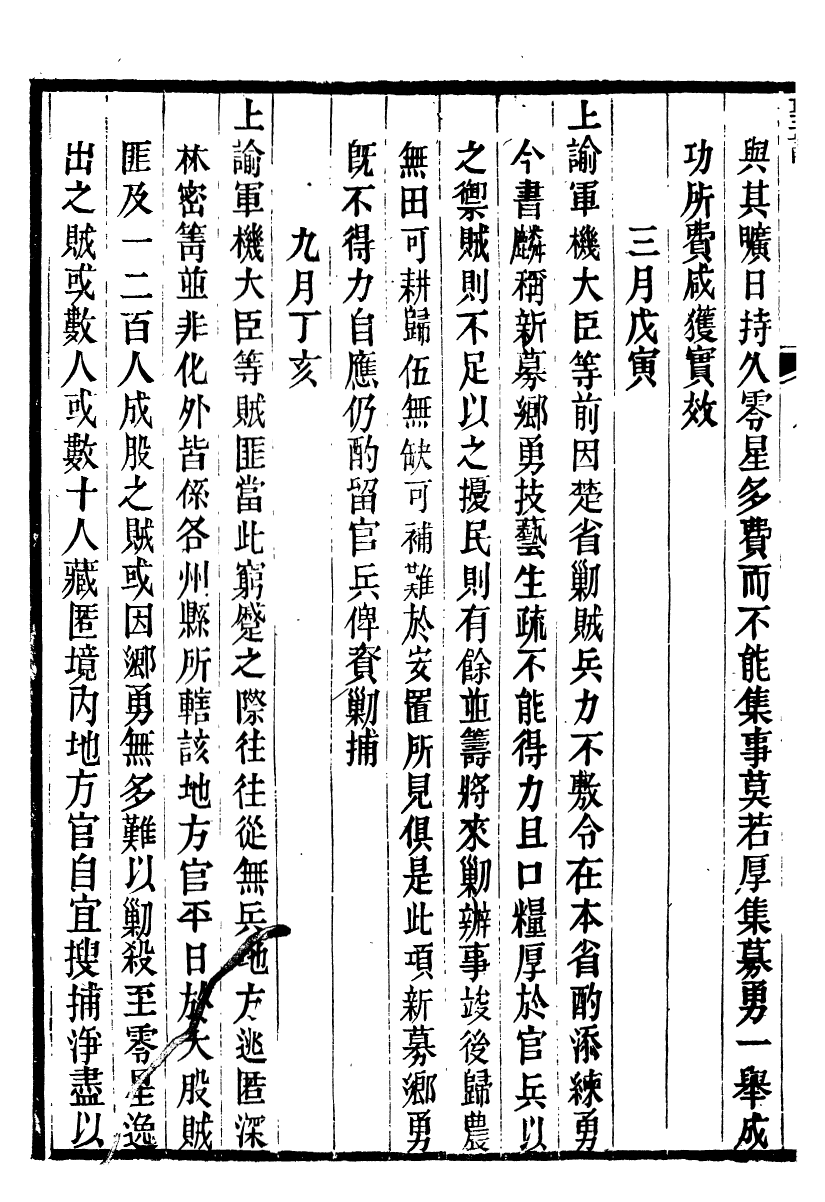 與其曠日持久零星多費而不能集事莫若厚集募勇一舉成
功所費咸獲實效
三月戊寅
上諭軍機大臣等前因楚省勦賊兵力不敷令在本省酌添練勇
今書麟稱新募鄉勇技藝生疏不能得力且口糧厚於官兵以
之禦賊則不足以之擾民則有餘並籌將來勦辦事竣後歸農
無田可耕歸伍無缺可補難於安置所見俱是此項新募鄉勇
旣不得力自應仍酌留官兵俾資勦捕
九月丁亥
上諭軍機大臣等賊匪當此窮蹙之際往往從無兵地方逃匿深
林密箐並非化外皆係各州縣所轄該地方官平日於大股賊
匪及一二百人成股之賊或因鄉勇無多難以勦殺至零星逸
出之賊或數人或數十人藏匿境內地方官自宜搜捕淨盡以